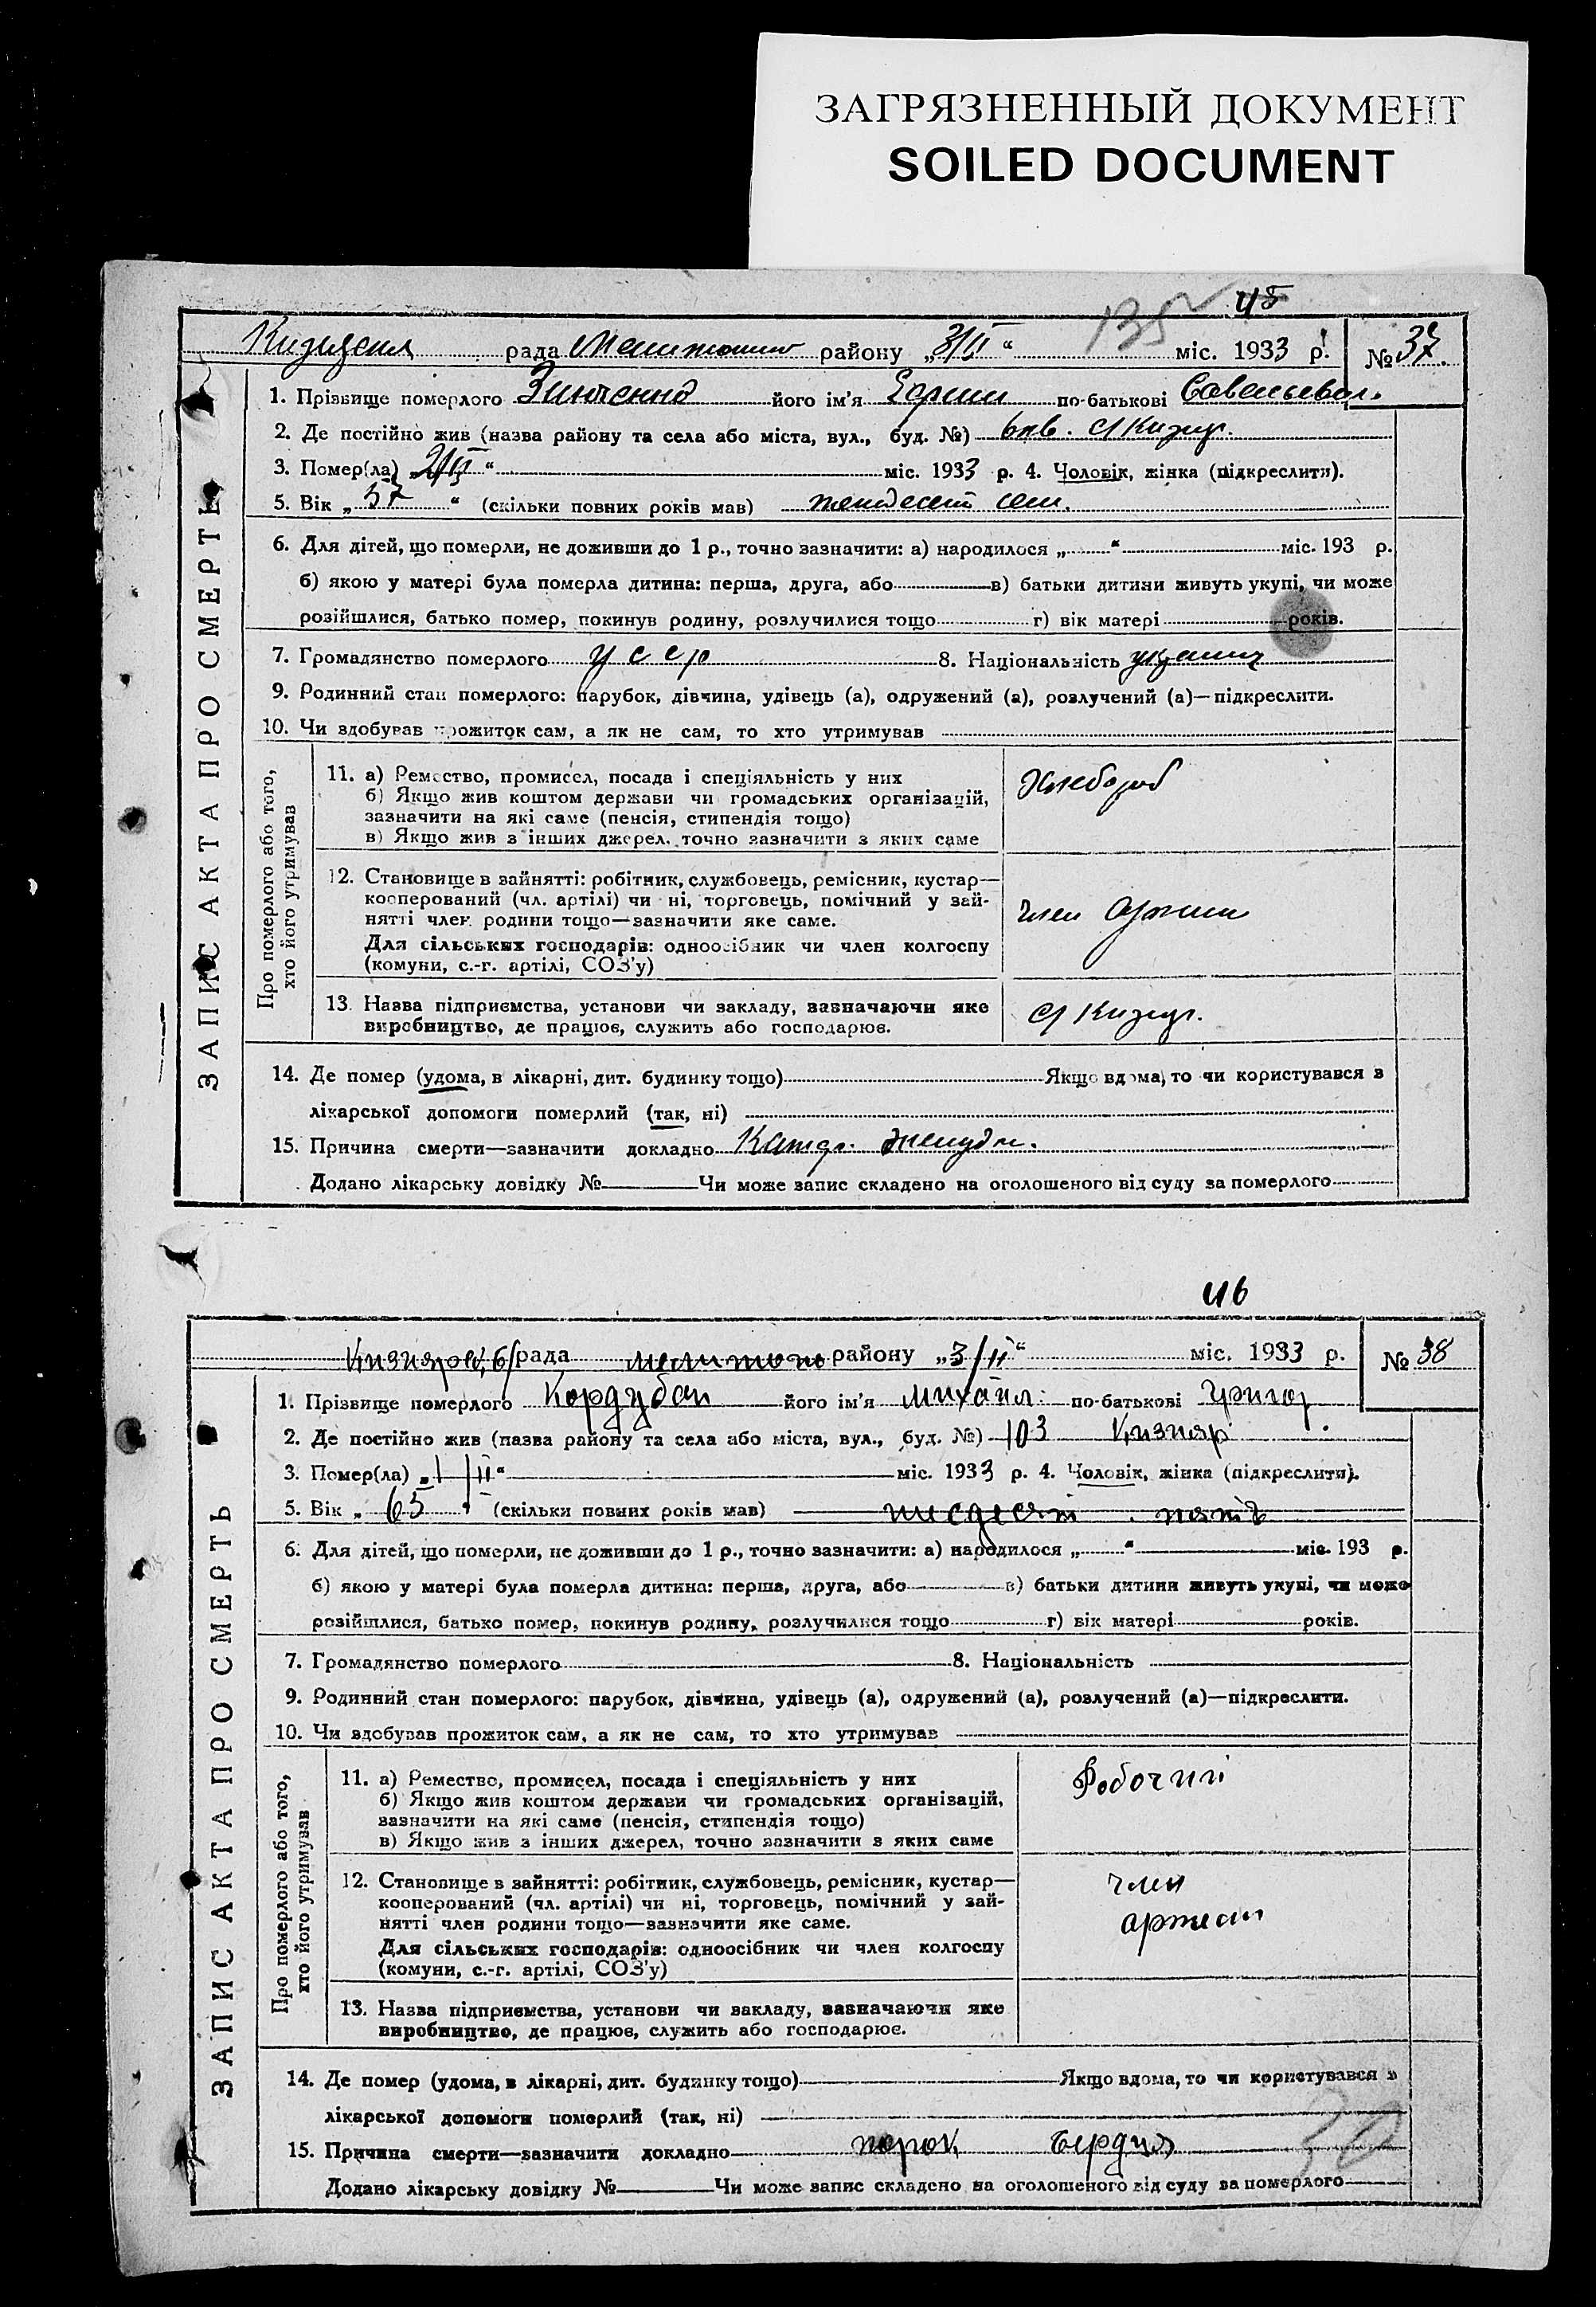 ЗАГРЯЗНЕННЫЙ ДОКУМЕНТ
SOILED DOCUMENT
135 45
рада района району „3/II“ міс. 1933 р. № 37.
1. Прізвище померлого Зинченко його ім'я Ефим по-батькові Савельевич.
2. Де постійно жив (назва району та села або міста, вул., буд. №) с/ Кизияр.
3. Помер(ла) „2/II“ міс. 1933 р. 4. Чоловік, жінка (підкреслити).
5. Вік „57“ (скільки повних років мав)
6. Для дітей, що померли, не доживши до 1 р., точно зазначити: а) народилося „ “ міс. 193 р.
б) якою у матері була померла дитина: перша, друга, або в) батьки дитини живуть укупі, чи може
розійшлися, батько помер, покинув родину, розлучилися тощо г) вік матері років.
7. Громадянство померлого УССР 8. Національність украинец
9. Родинний стан померлого: парубок, дівчина, удівець (а), одружений (а), розлучений (а)—підкреслити.
10. Чи здобував прожиток сам, а як не сам, то хто утримував
ЗАПИС АКТА ПРО СМЕРТЬ
Про померлого або того,
хто його утримував
11. а) Ремество, промисел, посада і спеціяльність у них
б) Якщо жив коштом держави чи громадських організацій,
зазначити на які саме (пенсія, стипендія тощо)
в) Якщо жив з інших джерел, точно зазначити з яких саме
Хлебороб
12. Становище в зайнятті: робітник, службовець, ремісник, кустар—
кооперований (чл. артілі) чи ні, торговець, помічний у зай-
нятті член родини тощо—зазначити яке саме.
Для сільських господарів: одноосібник чи член колгоспу
(комуни, с.-г. артілі, СОЗ'у)
член Артели
13. Назва підприємства, установи чи закладу, зазначаючи яке
виробництво, де працює, служить або господарює.
с/ Кизияр.
14. Де помер (удома, в лікарні, дит. будинку тощо) Якщо вдома, то чи користувався з
лікарської допомоги померлий (так, ні)
15. Причина смерти—зазначити докладно Катар. желудк.
Додано лікарську довідку № Чи може запис складено на оголошеного від суду за померлого
46
рада району „3/II“ міс. 1933 р. № 38
1. Прізвище померлого Кордубан його ім'я Михаил по-батькові Григор
2. Де постійно жив (назва району та села або міста, вул., буд. №) 103 Кизияр
3. Помер(ла) „1/II“ міс. 1933 р. 4. Чоловік, жінка (підкреслити).
5. Вік „65“ (скільки повних років мав) шесдесят пять
6. Для дітей, що померли, не доживши до 1 р., точно зазначити: а) народилося „ “ міс. 193 р.
б) якою у матері була померла дитина: перша, друга, або в) батьки дитини живуть укупі, чи може
розійшлися, батько помер, покинув родину, розлучилися тощо г) вік матері років.
7. Громадянство померлого 8. Національність
9. Родинний стан померлого: парубок, дівчина, удівець (а), одружений (а), розлучений (а)—підкреслити.
10. Чи здобував прожиток сам, а як не сам, то хто утримував
ЗАПИС АКТА ПРО СМЕРТЬ
Про померлого або того,
хто його утримував
11. а) Ремество, промисел, посада і спеціяльність у них
б) Якщо жив коштом держави чи громадських організацій,
зазначити на які саме (пенсія, стипендія тощо)
в) Якщо жив з інших джерел, точно зазначити з яких саме
Робочий
12. Становище в зайнятті: робітник, службовець, ремісник, кустар—
кооперований (чл. артілі) чи ні, торговець, помічний у зай-
нятті член родини тощо—зазначити яке саме.
Для сільських господарів: одноосібник чи член колгоспу
(комуни, с.-г. артілі, СОЗ'у)
член
артели
13. Назва підприємства, установи чи закладу, зазначаючи яке
виробництво, де працює, служить або господарює.
14. Де помер (удома, в лікарні, дит. будинку тощо) Якщо вдома, то чи користувався з
лікарської допомоги померлий (так, ні)
15. Причина смерти—зазначити докладно порок сердця
Додано лікарську довідку № Чи може запис складено на оголошеного від суду за померлого